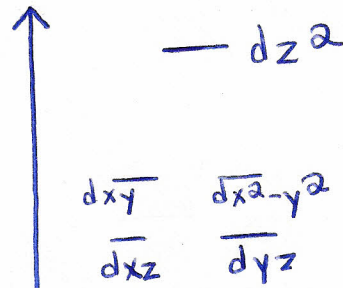 dz²
dxy dx²-y²
dxz dyz